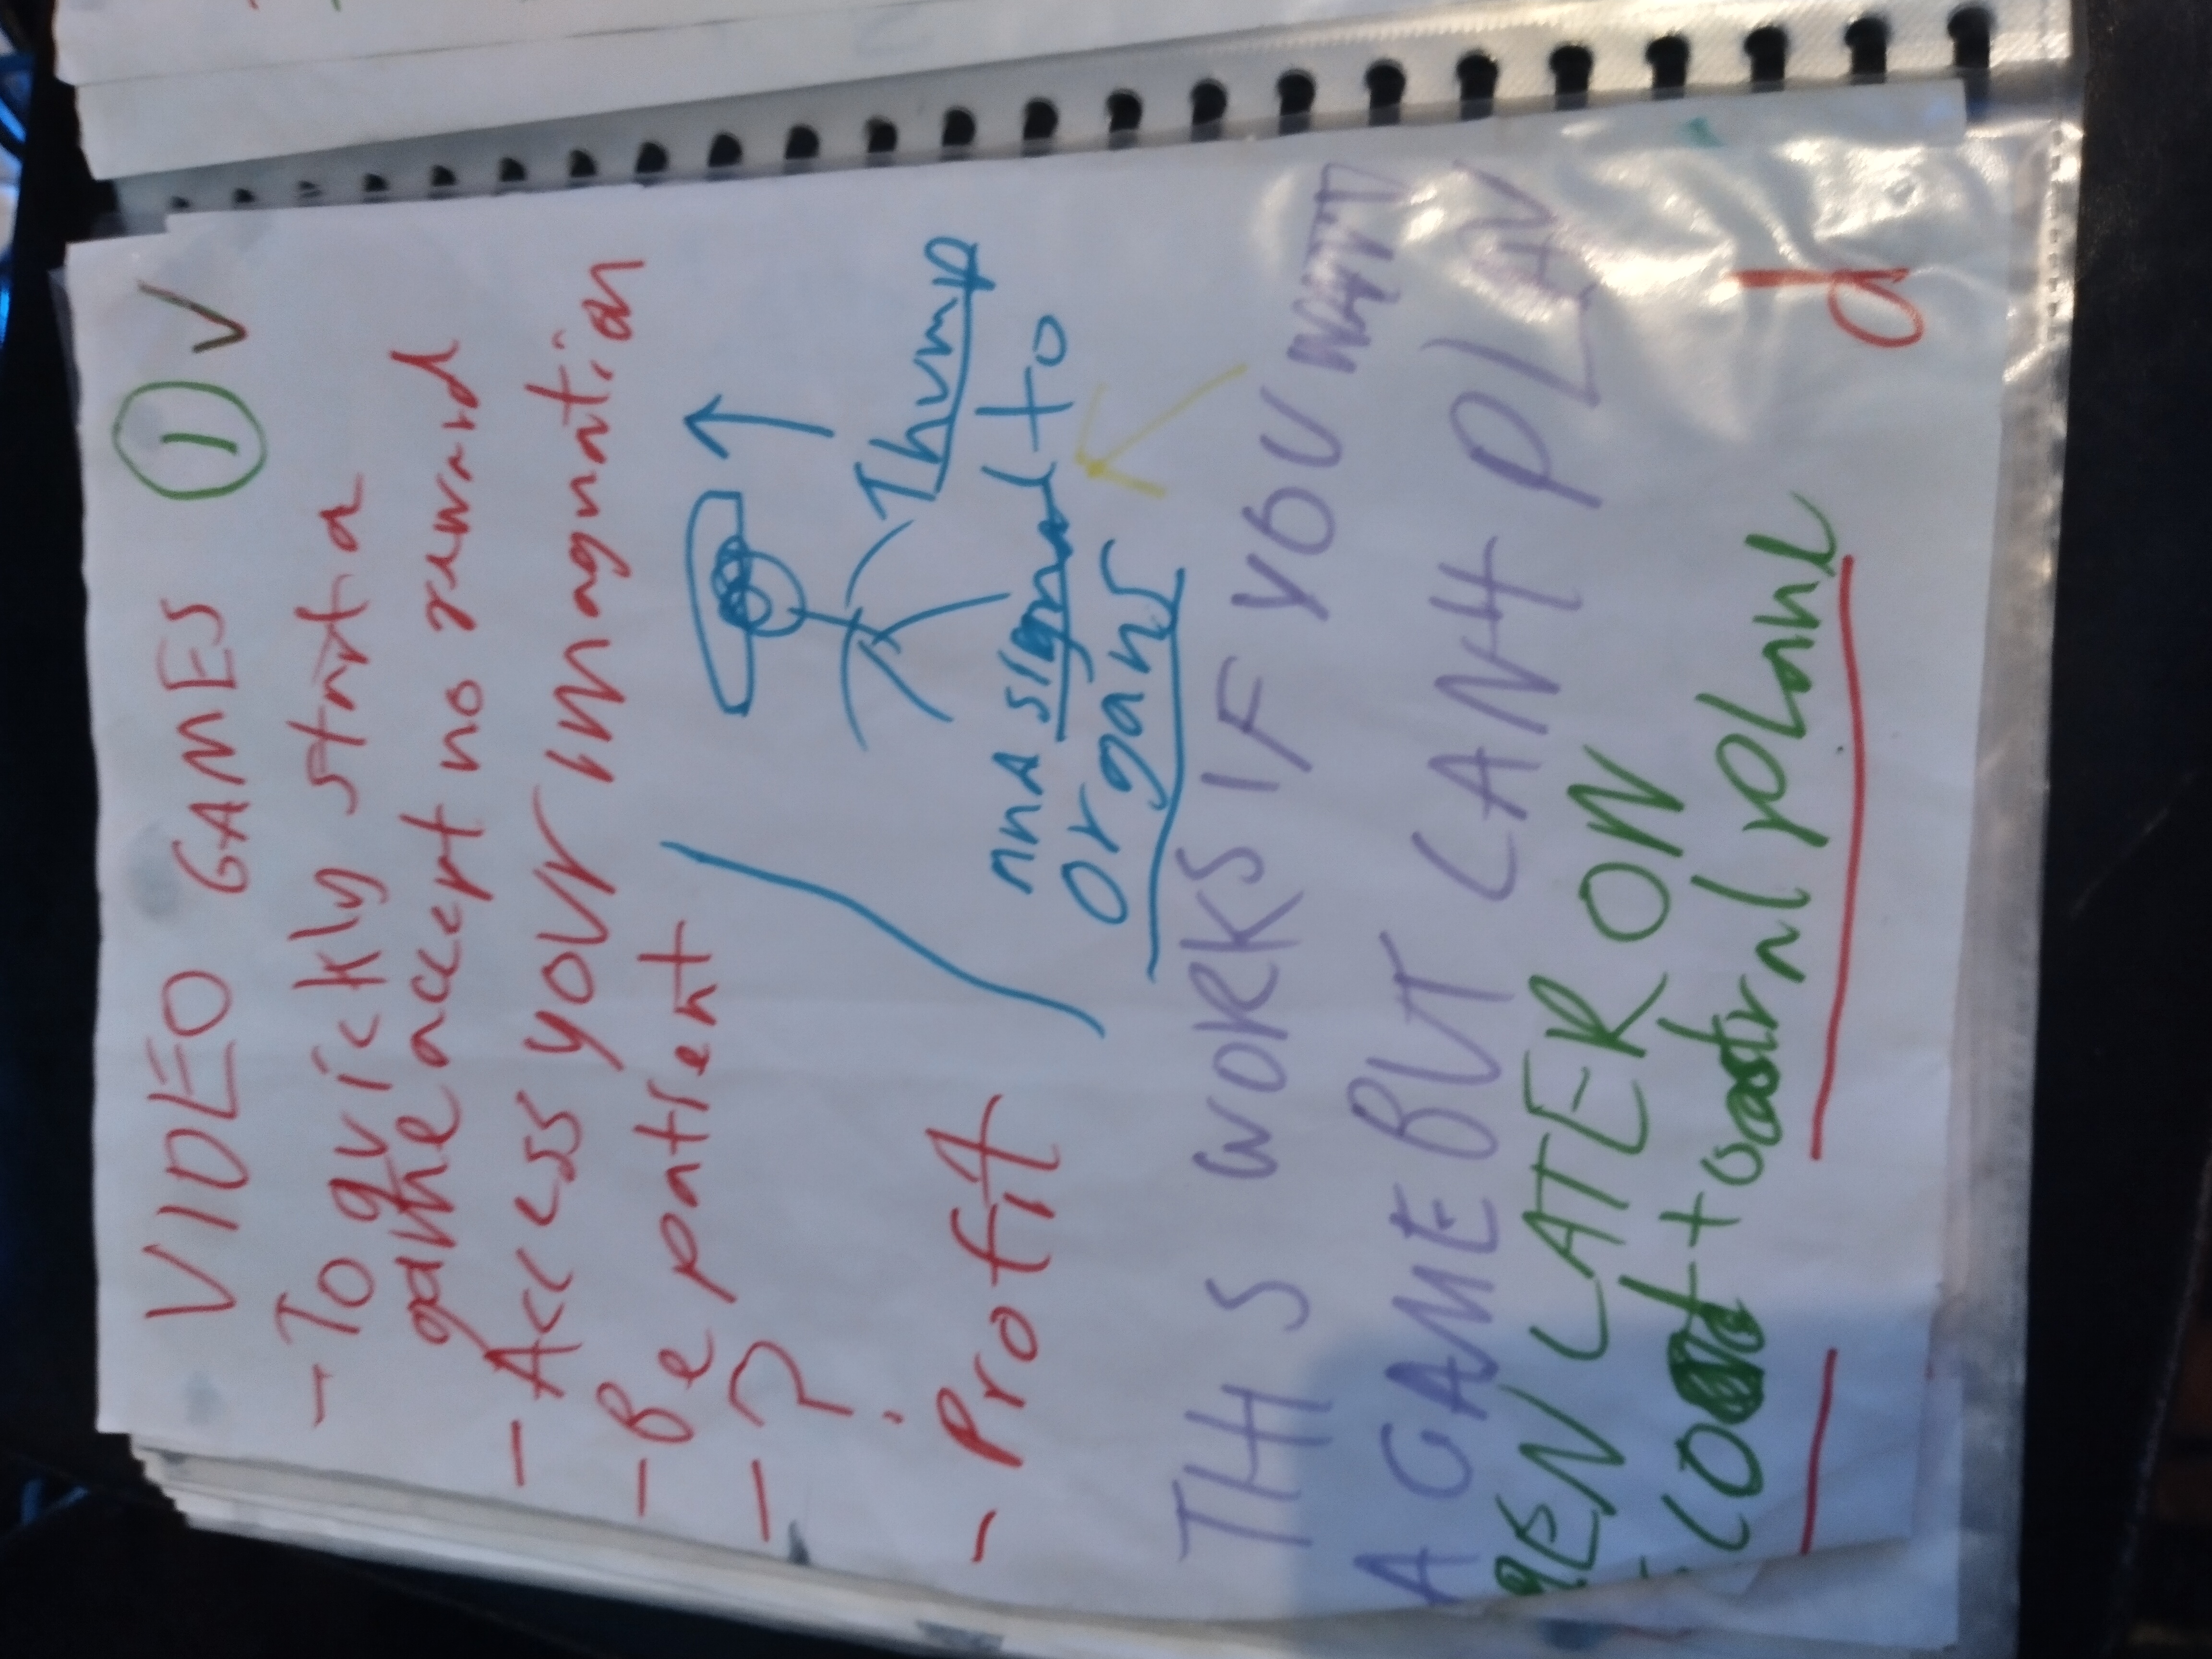 VIDEO GAMES 1 V
- To quickly start a
game accept no reward
- Access your imagnation
- Be patient
- ?
- Profit
Thump
and signal to
organs
THIS WORKS IF YOU WANT
A GAME BUT CANT PLAN
LATER ON
astral plane